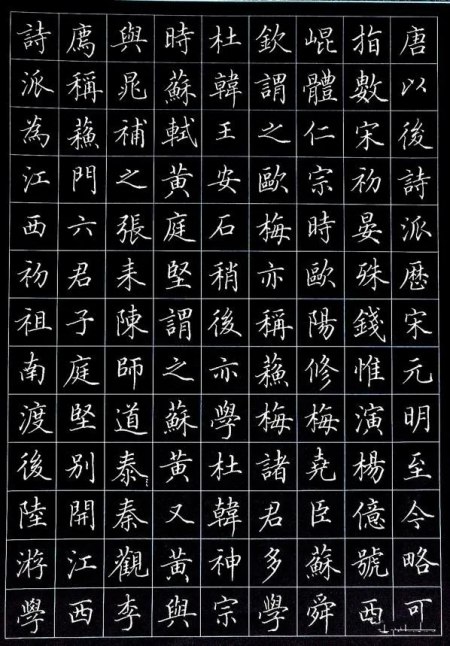 唐以後詩派歷宋元明至今略可
指數宋初晏殊錢惟演楊億號西
崐體仁宗時歐陽修梅堯臣蘇舜
欽謂之歐梅亦稱蘓梅諸君多學
杜韓王安石稍後亦學杜韓神宗
時蘇軾黄庭堅謂之蘇黄又黄與
與晁補之張耒陳師道泰秦觀李
廌稱蘓門六君子庭堅別開江西
詩派為江西初祖南渡後陸游學